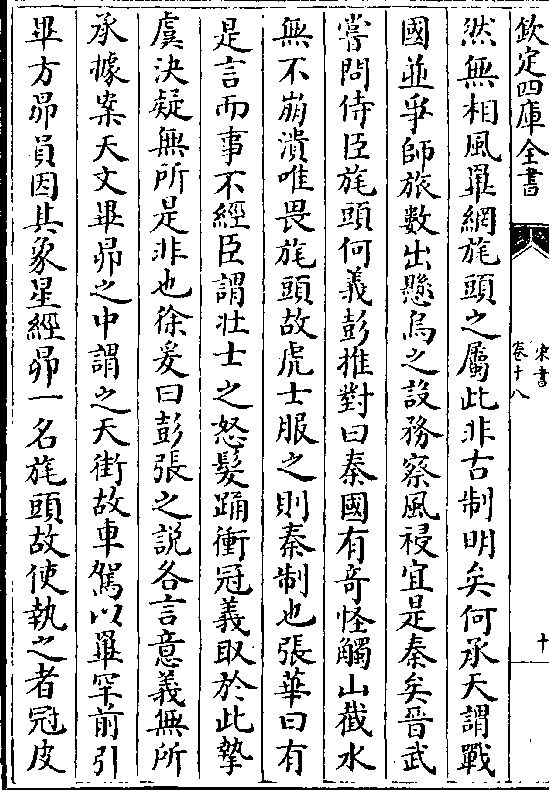 欽定四庫全書
宋書
卷十八
十
然無相風罼網旄頭之屬此非古制明矣何承天謂戰
國並爭師旅數出懸烏之設務察風祲宜是秦矣晉武
嘗問侍臣旄頭何義彭推對曰秦國有奇怪觸山截水
無不崩潰唯畏旄頭故虎士服之則秦制也張華曰有
是言而事不經臣謂壯士之怒髮踊衝冠義取於此摯
虞決疑無所是非也徐爰曰彭張之說各言意義無所
承據案天文畢昴之中謂之天街故車駕以罼罕前引
畢方昴員因其象星經昴一名旄頭故使執之者冠皮